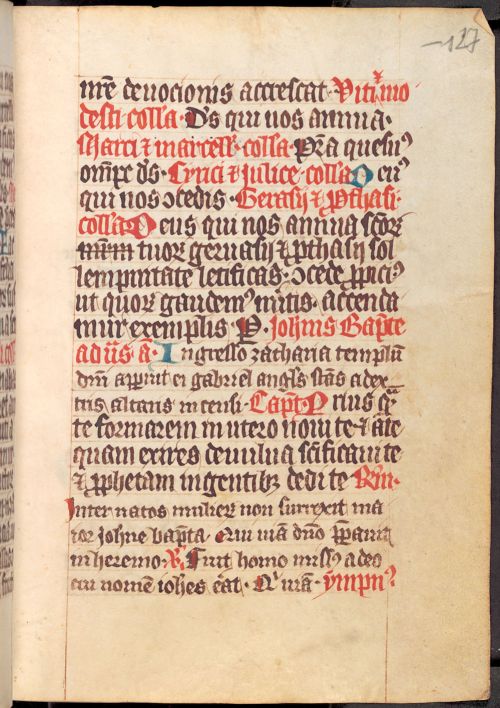 127
mē deuocionis accrescat · Viti mo
desti colla · Ds qui nos annua ·
Marci ⁊ marcell · colla · Pr̄a quesuꝰ
omp̄e ds · Cyrici ⁊ Julice · colla O cuꝰ
qui nos ↄcedis · Gerasij ⁊ Pthasi ·
colla · Deus qui nos annua scōꝝ
mam tuoꝝ geruasij ⁊ pthasij sol
lempnitate letificas · ↄcede ꝓpiciꝰ
ut quoꝝ gaudemꝰ mitis · accenda
mur exemplis P · Johnis Bapte
ad ūs ā · Ingresso zacharia templū
dm̄ appūit ei gabriel angls stās a dex
tris altaris incensi · Capt · Prius q̄
te formarem in utero noui te · ⁊ ante
quam exires de vulua scificaui te
⁊ ꝓphetam in gentibꝫ dedi te Rm̄ ·
Inter natos mulieꝝ non surrexit ma
ior johne bapta · Qui uiā dn̄o p̄parauit
in heremo · V̄ · Fuit homo missꝰ a deo
cui nomē iohes eāt · Qi uiā · ympnꝰ